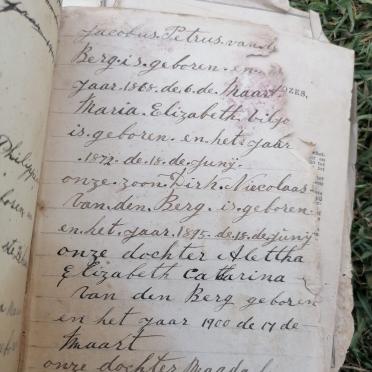 Jacobus Petrus van d
Berg is geboren en
jaar 1868 de 6 de Maart
Maria Elizabeth
is geboren en het jaar
1872 de 18 de Junij
onze zoon Dirk Nicolaas
van den Berg is geboren
en het jaar 1895 de 18 de junij
onze dochter Alettha
Elizabeth Catharina
van den Berg geboren
en het jaar 1900 de 17 de
Maart
onze dochter